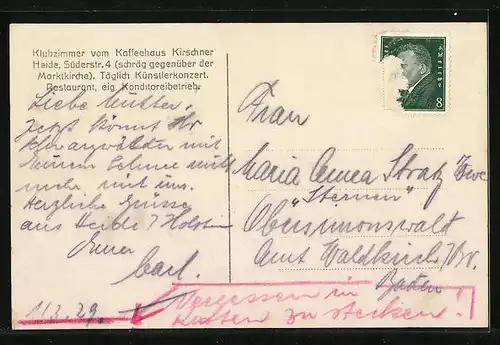 Klubzimmer vom Kaffeehaus Kirschner
Heide, Süderstr. 4 (schräg gegenüber der
Marktkirche). Täglich Künstlerkonzert.
Restaurant, eig. Konditoreibetrieb.
Liebe Mutter,
Jetzt könnt Ihr
Schwarzwälder mit
Eurem Schnee nicht
mehr mit uns.
Herzliche Grüsse
aus Heide / Holstein
Euer
Carl.
11.3.29.
Frau
Maria Anna Stratz Zwe
"Sternen"
Obersimonswald
Amt Waldkirch / Br.
Baden
Vergessen in
Kasten zu stecken!
8